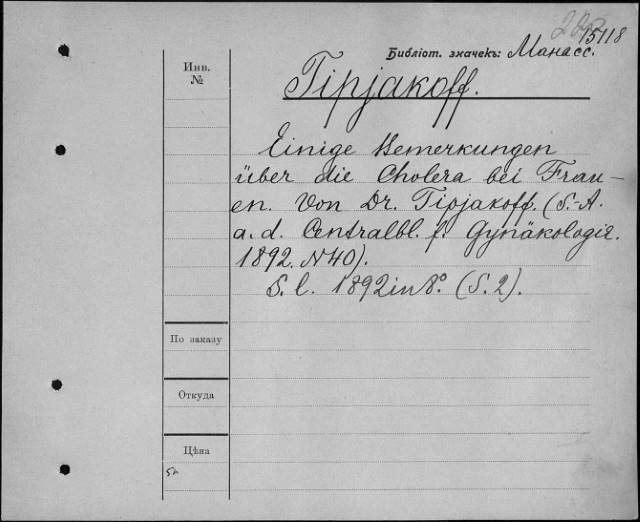 15118
Библіот. значекъ: Манасс.
Инв.
№
Tipjakoff.
Einige Bemerkungen
über die Cholera bei Frau-
en. Von Dr. Tipjakoff. (S.-A.
a. d. Centralbl. f. Gynäkologie.
1892. N40).
S. l. 1892 in 8°. (S. 2).
По заказу
Откуда
Цѣна